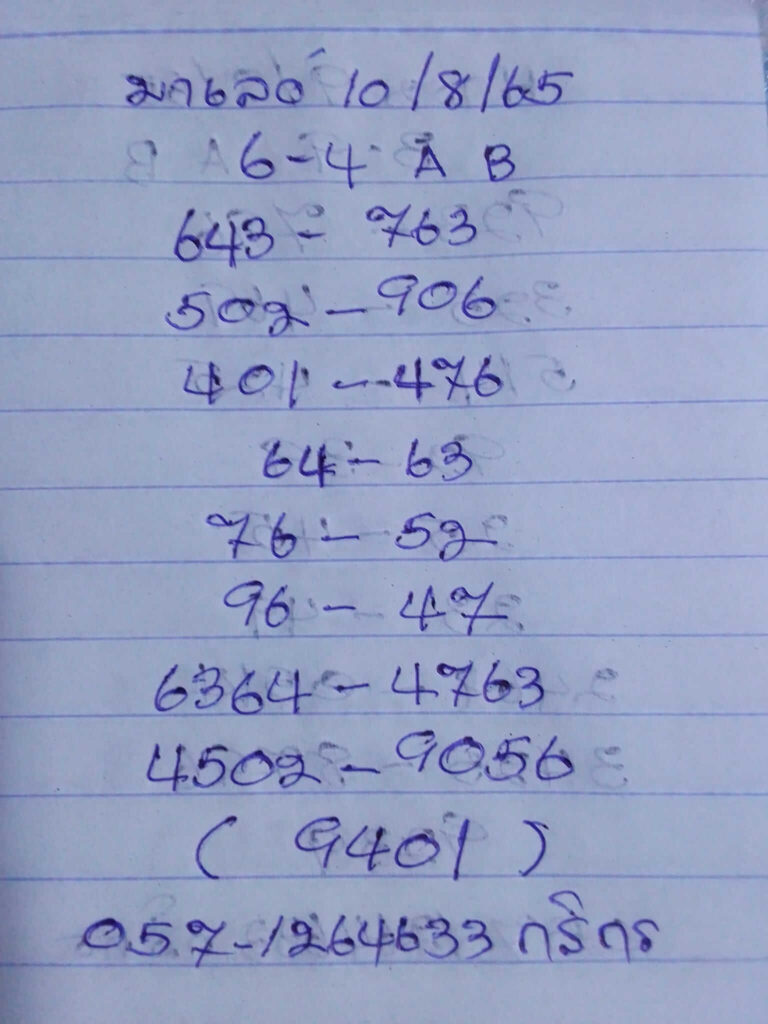 มาเลย์ 10/8/65
6-4 A B
643 - 763
502 - 906
401 - 476
64 - 63
76 - 52
96 - 47
6364 - 4763
4502 - 9056
( 9401 )
057-1264633 กริกร